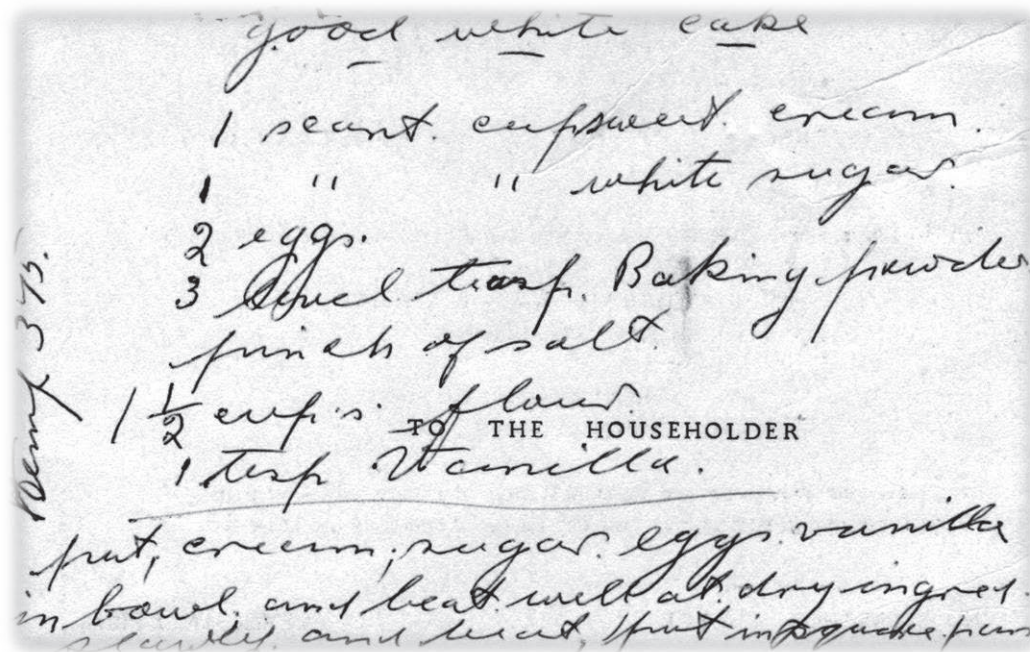 good white cake
1 scant. cup sweet. cream.
1 " " white sugar.
2 eggs.
3 level teasp. Baking powder
pinch of salt.
1 1/2 cups. flour.
TO THE HOUSEHOLDER
1 tesp Vanilla.
put, cream, sugar. eggs. vanilla
in bowl. and beat. well at. dry ingred.
slowly and beat, put in square pan
375.